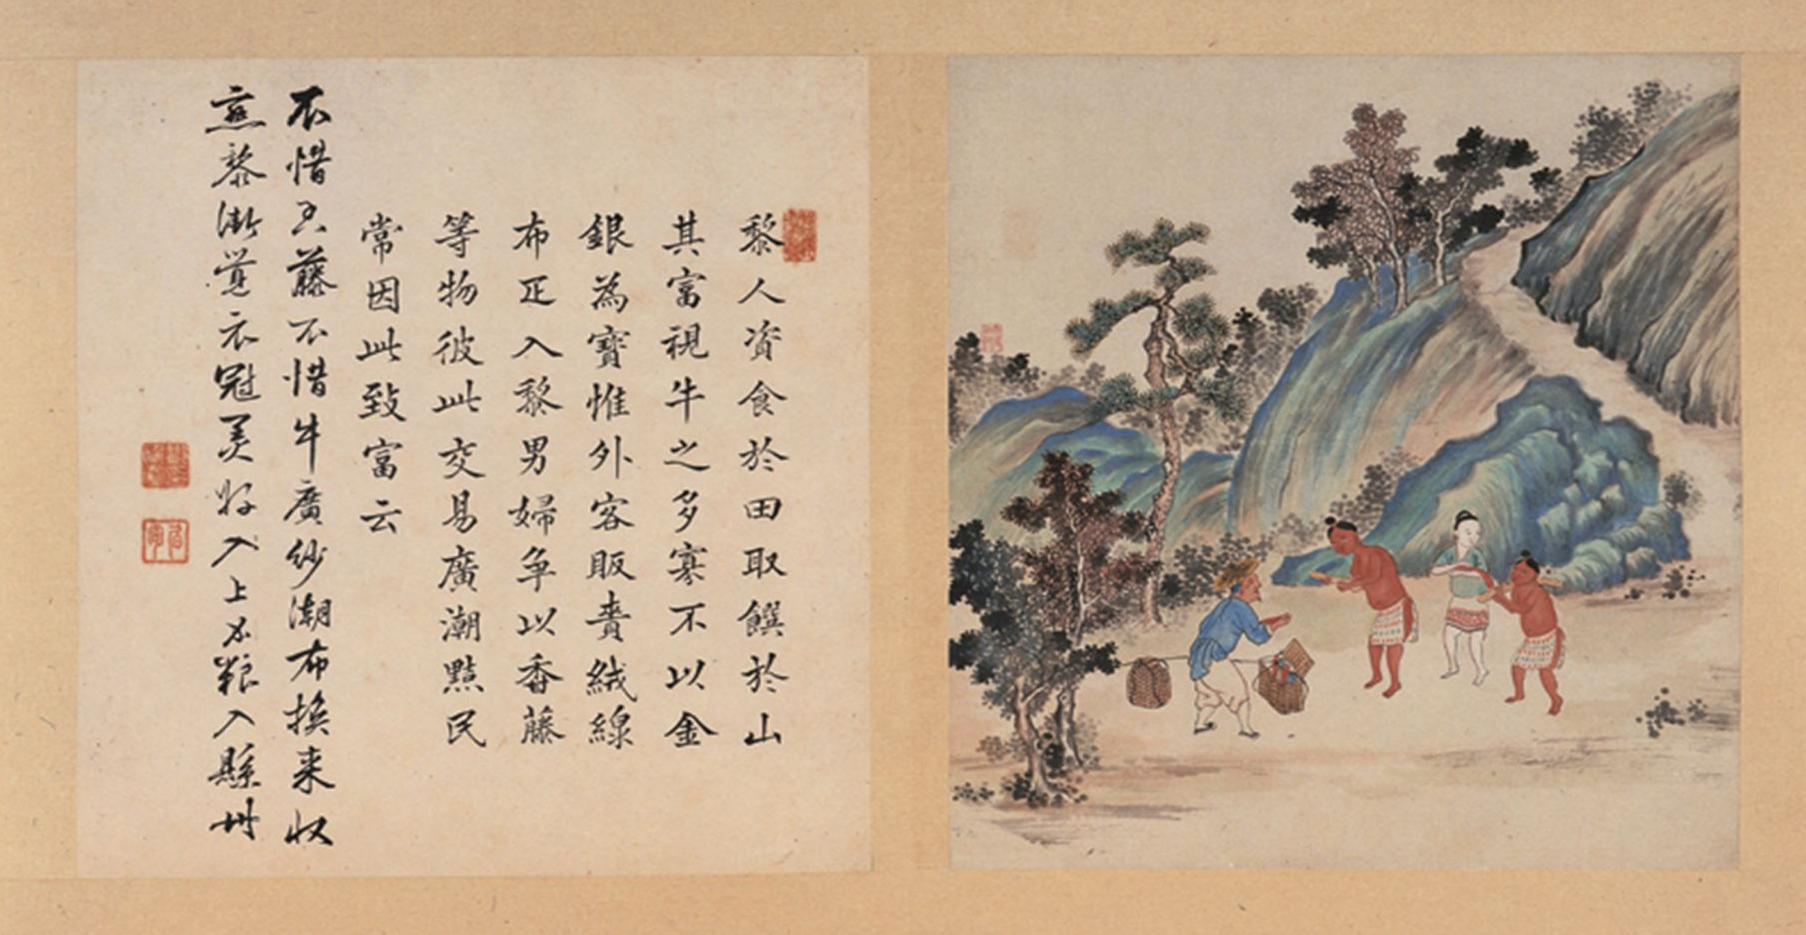 黎人資食於田取饌於山
其富視牛之多寡不以金
銀為寶惟外客販賫絨線
布疋入黎男婦爭以香藤
等物彼此交易廣潮黠民
常因此致富云
不惜藤不惜牛廣紗潮布換来收
黎漸覺衣冠美好粮入縣州